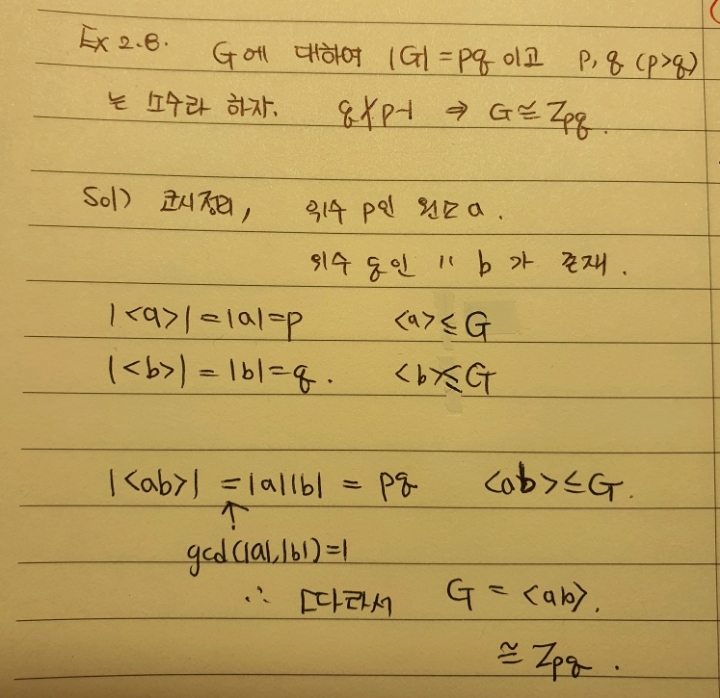 Ex 2.8. G에 대하여 |G|=pq 이고 p, q (p>q)
는 소수라 하자. q∤p-1 ⇒ G≅Zpq.
Sol) 코시정리, 위수 p인 원소 a.
위수 q인 〃 b 가 존재.
|<a>|=|a|=p <a>≤G
|<b>|=|b|=q. <b>≤G
|<ab>| =|a||b| = pq <ab>≤G.
↑
gcd(|a|,|b|)=1
∴ 따라서 G = <ab>.
≅ Zpq.